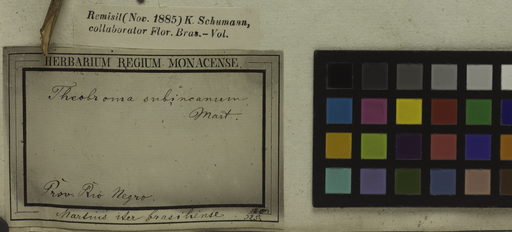 Remisit (Nov. 1885) K. Schumann,
collaborator Flor. Bras.-Vol.
HERBARIUM REGIUM MONACENSE.
Theobroma subincanum
Mart.
Prov. Rio Negro.
Martius iter brasiliense.